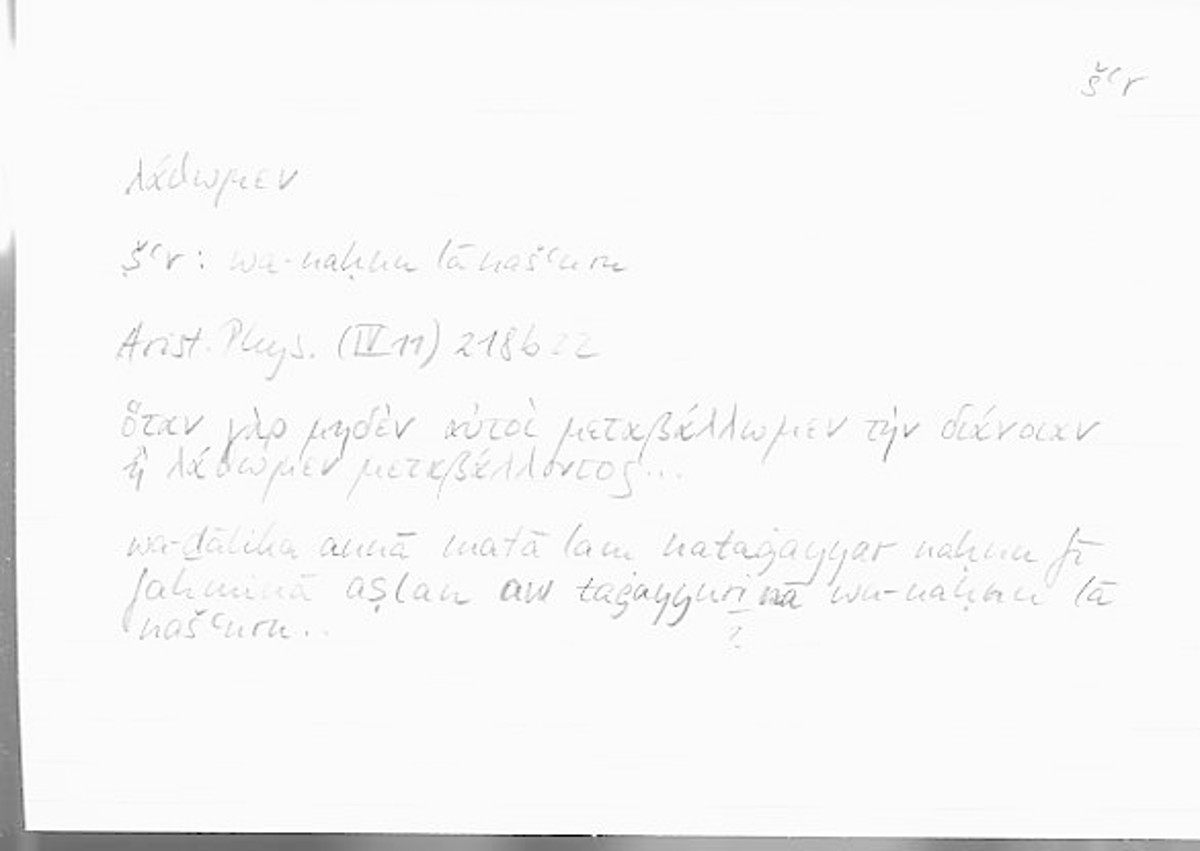 šʿr
λάθωμεν
šʿr: wa-naḥnu lā našʿuru
Arist. Phys. (IV 11) 218b22
ὅταν γὰρ μηδὲν αὐτοὶ μεταβάλλωμεν τὴν διάνοιαν
ἢ λάθωμεν μεταβάλλοντες...
wa-ḏālika annā matā lam nataġayyar naḥnu fī
fahminā aṣlan aw taġayyurinā wa-naḥnu lā
?
našʿuru..